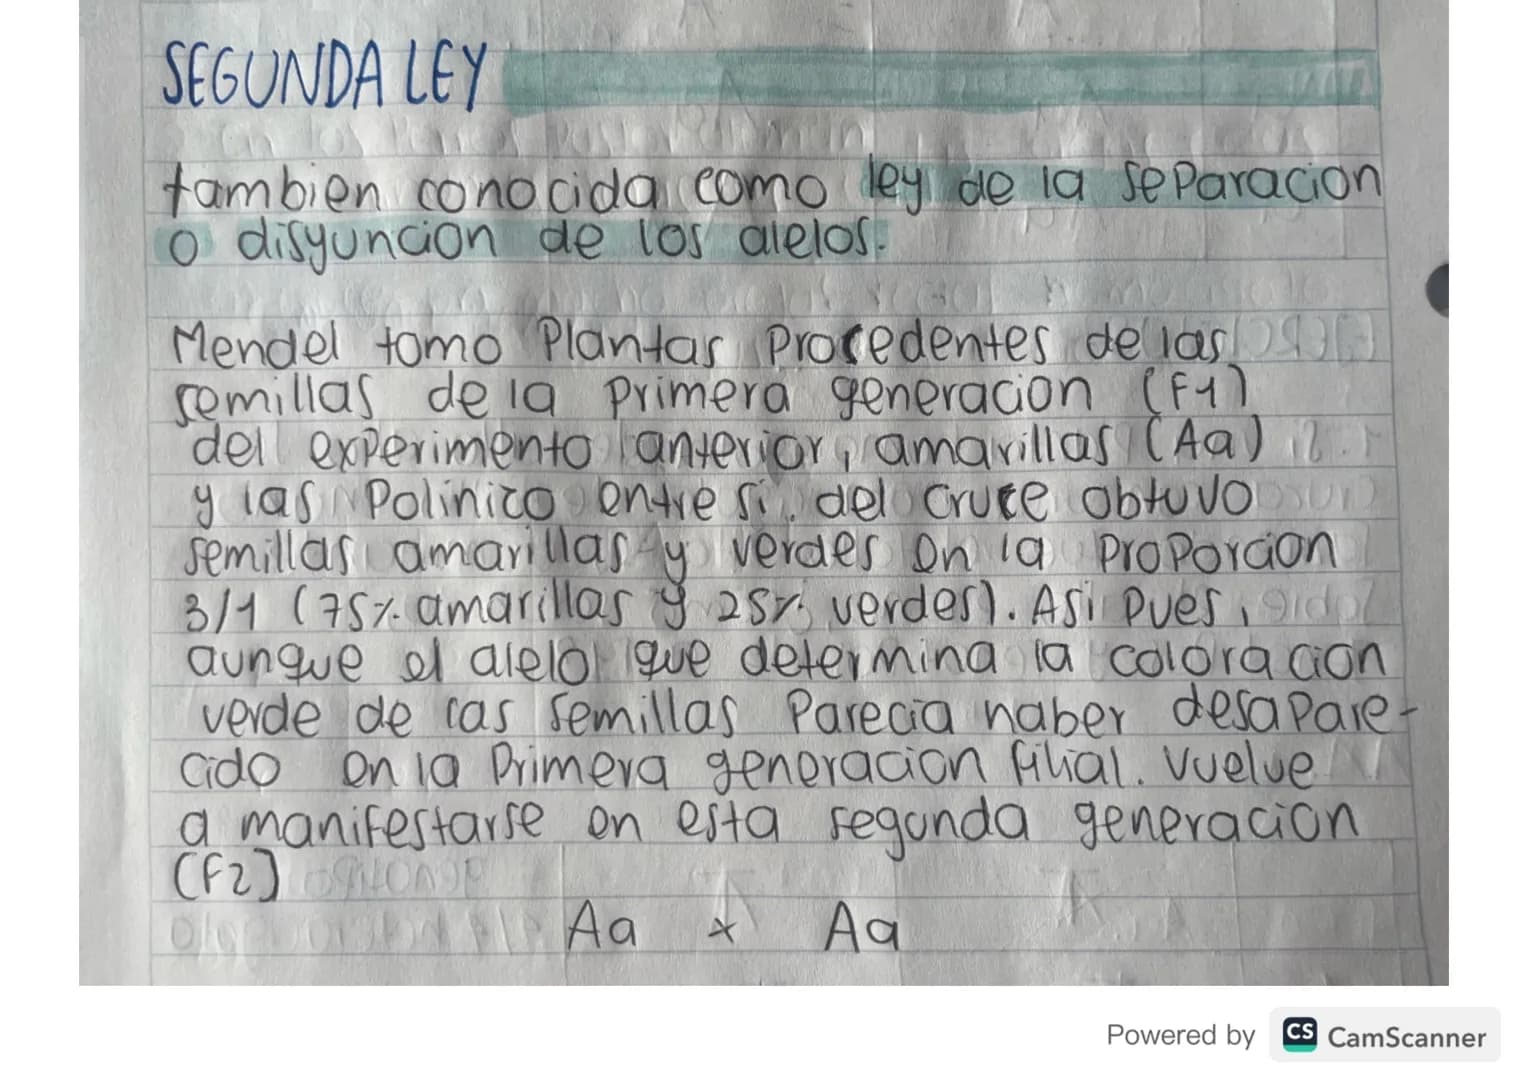 SEGUNDA LEY
tambien conocida como ley de la separacion
o disyuncion de los alelos.
Mendel tomo Plantas Procedentes de las
semillas de la Primera generacion (F1)
del experimento anterior, amarillas (Aa)
y las Polinico entre si. del cruce obtuvo
semillas amarillas y verdes en la ProPorcion
3/1 (75% amarillas y 25% verdes). Asi Pues,
aunque el alelo que determina la coloracion
verde de las semillas Parecia haber desapare-
cido en la Primera generacion filial. Vuelve
a manifestarse en esta segunda generacion
(F2)
Aa x Aa
Powered by CS CamScanner